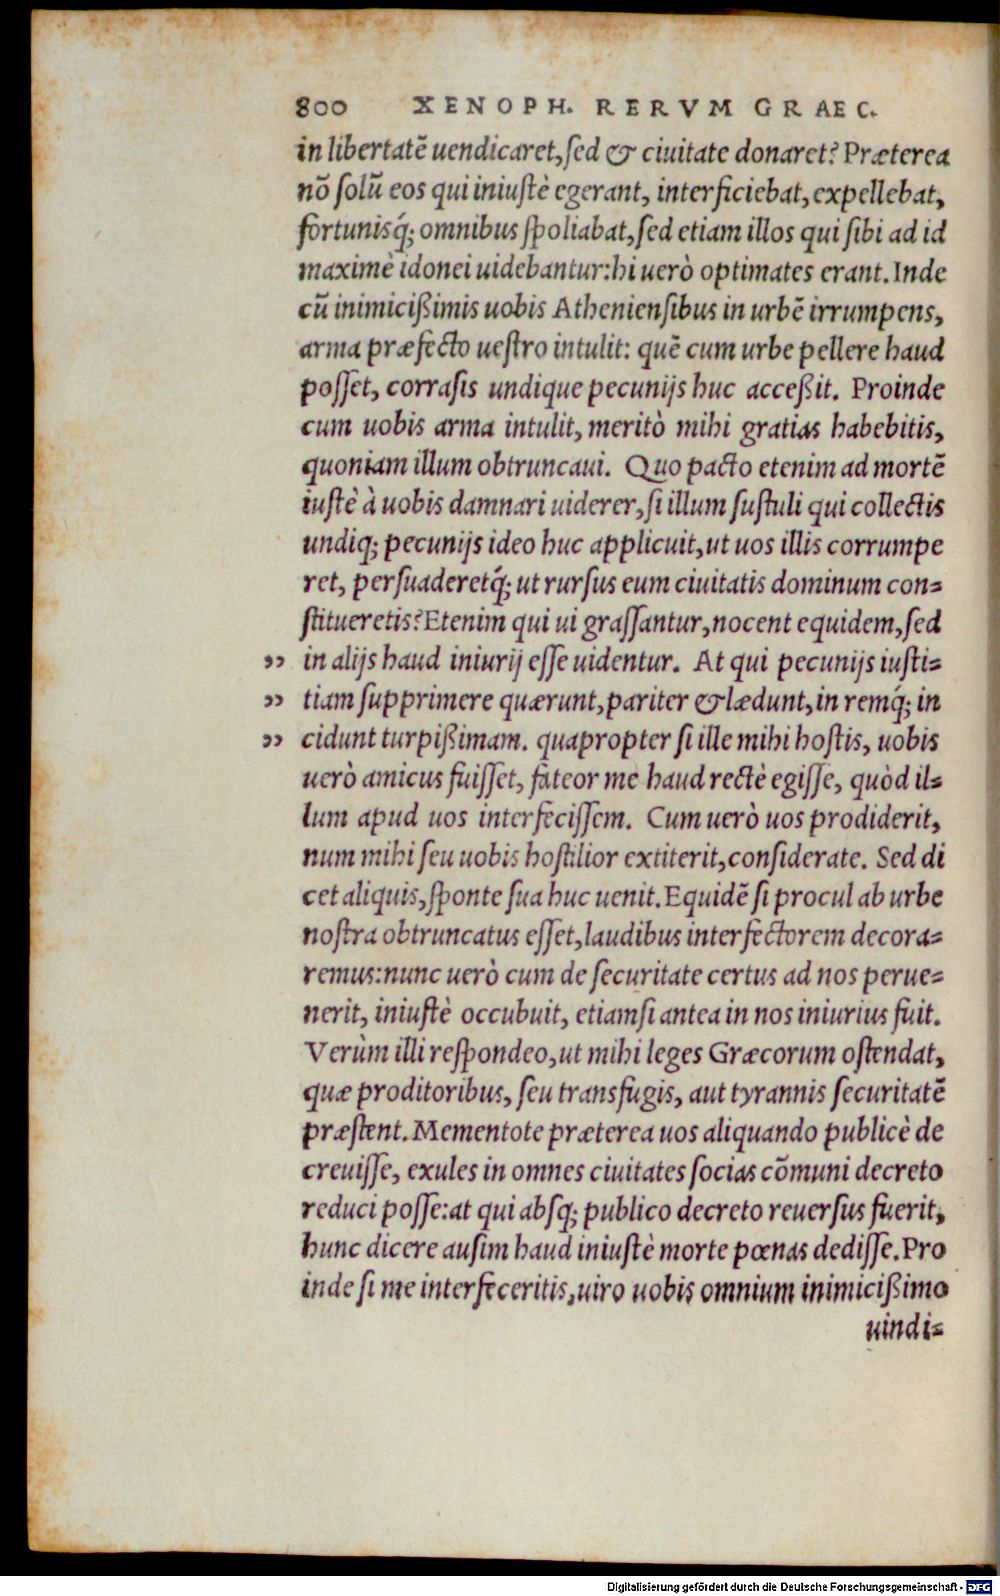 800 XENOPH. RERVM GRAEC.
in libertatē uendicaret, sed & ciuitate donaret? Præterea
nō solũ eos qui iniustè egerant, interficiebat, expellebat,
fortunisq́; omnibus spoliabat, sed etiam illos qui sibi ad id
maximè idonei uidebantur: hi uerò optimates erant. Inde
cũ inimicißimis uobis Atheniensibus in urbē irrumpens,
arma præfecto uestro intulit: quē cum urbe pellere haud
posset, corrasis undique pecunijs huc acceßit. Proinde
cum uobis arma intulit, meritò mihi gratias habebitis,
quoniam illum obtruncaui. Quo pacto etenim ad mortē
iustè à uobis damnari uiderer, si illum sustuli qui collectis
undiq; pecunijs ideo huc applicuit, ut uos illis corrumpe
ret, persuaderetq́; ut rursus eum ciuitatis dominum con-
stitueretis? Etenim qui ui grassantur, nocent equidem, sed
,, in alijs haud iniurij esse uidentur. At qui pecunijs iusti-
,, tiam supprimere quærunt, pariter & lædunt, in remq́; in
,, cidunt turpißimam. quapropter si ille mihi hostis, uobis
uerò amicus fuisset, fateor me haud rectè egisse, quòd il-
lum apud uos interfecissem. Cum uerò uos prodiderit,
num mihi seu uobis hostilior extiterit, considerate. Sed di
cet aliquis, sponte sua huc uenit. Equidē si procul ab urbe
nostra obtruncatus esset, laudibus interfectorem decora-
remus: nunc uerò cum de securitate certus ad nos perue-
nerit, iniustè occubuit, etiamsi antea in nos iniurius fuit.
Verùm illi respondeo, ut mihi leges Græcorum ostendat,
quæ proditoribus, seu transfugis, aut tyrannis securitatē
præstent. Mementote præterea uos aliquando publicè de
creuisse, exules in omnes ciuitates socias cōmuni decreto
reduci posse: at qui absq; publico decreto reuersus fuerit,
hunc dicere ausim haud iniustè morte pœnas dedisse. Pro
inde si me interfeceritis, uiro uobis omnium inimicißimo
uindi-
Digitalisierung gefördert durch die Deutsche Forschungsgemeinschaft - DFG